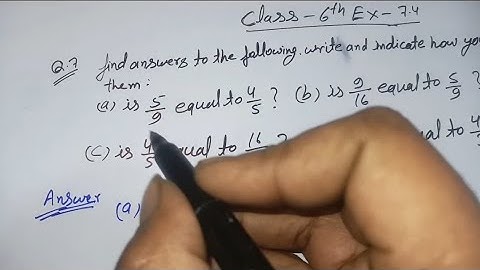 Class - 6th Ex - 7.4
Q.7 find answers to the following. write and indicate how you
them :
(a) is 5/9 equal to 4/5 ? (b) is 9/16 equal to 5/9 ?
(c) is 4/5 equal to 16 ?
Answer (a)